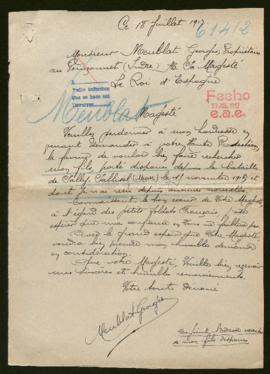 Ce 18 Juillet 1917
61412
Monsieur Meublat Georges, Propriétaire
au (Indre) à Sa Majesté
Le Roi d'Espagne
Fecho
e.a.e.
Meublat
Majesté
Veuillez pardonner à mon hardiesse en
venant demander à votre Haute
la faveur de vouloir bien faire rechercher
mon fils porté disparu depuis la bataille
de Sailly-Saillisel (Somme) le 15 novembre 1916 et
dont je n'ai reçu depuis aucune nouvelle
Connaissant le bon cœur de Votre Majesté
à l'égard des petits soldats Français, j'ose
espérer que ma
Dans le grand espoir que Votre Majesté
voudra bien prendre mon humble demande
en considération.
Que votre Majesté, Veuillez bien recevoir
mes sincères et humbles remerciements.
Votre tout dévoué
Meublat Georges
Ci-joint, Adresse exacte
de mon fils disparu